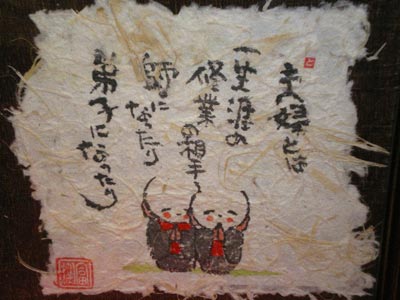 夫婦とは
一生涯の
修業の相手
師になったり
弟子になったり